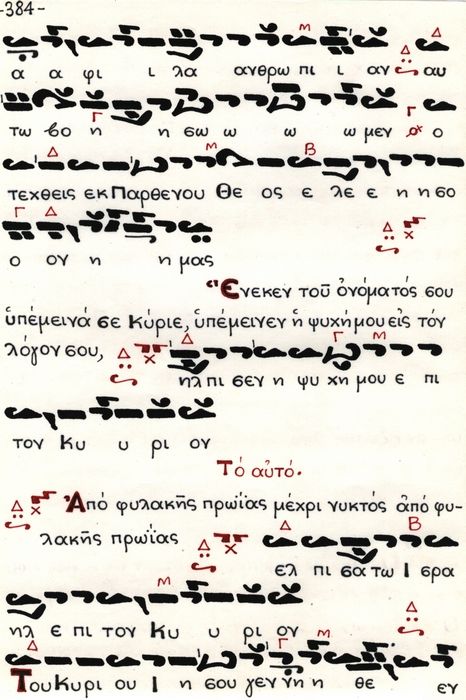 -384-
α α φι ι λα ανθρω πι ι αν αυ
τω βο η η σω ω ω ω μεν ο
τεχθεις εκ Παρθενου Θε ος ε λε ε η η σο
ο ον η η μας
Ἕνεκεν τοῦ ὀνόματός σου
ὑπέμεινά σε Κύριε, ὑπέμεινεν ἡ ψυχή μου εἰς τόν
λόγον σου, ηλ πι σεν η ψυ χη μου ε πι
τον Κυ υ ρι ον
Τό αὐτό.
Ἀπό φυλακῆς πρωΐας μέχρι νυκτός ἀπό φυ-
λακῆς πρωΐας ελ πι σα τω Ι σρα
ηλ ε πι τον Κυ υ ρι ον
Του Κυρι ου Ι η σου γεν νη η θε εν